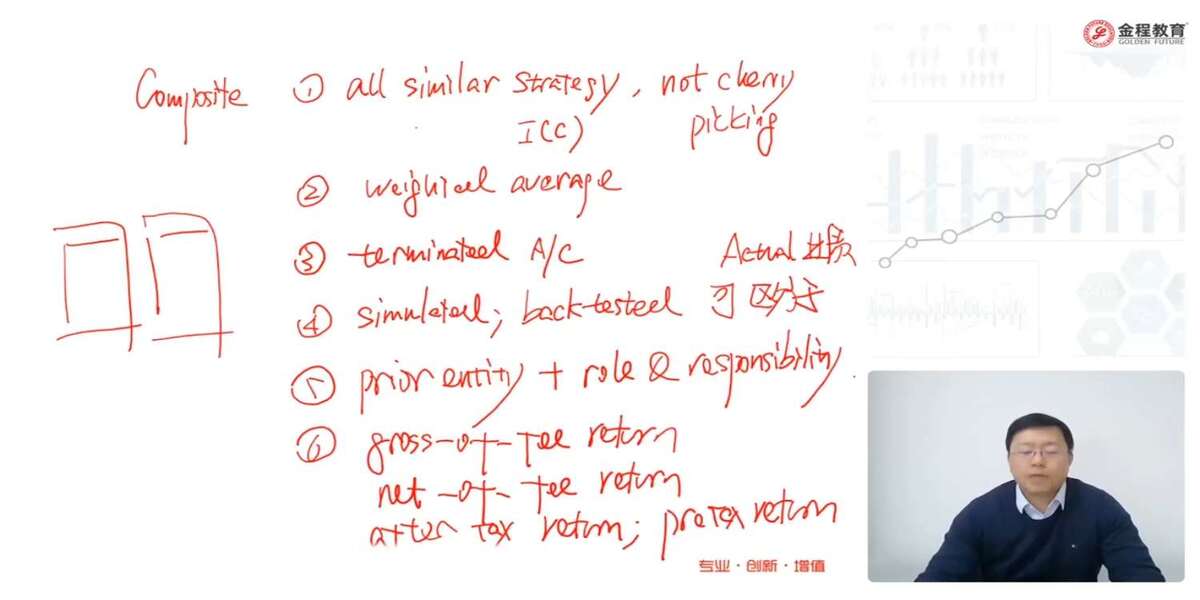 金程教育
GOLDEN FUTURE
Composite ① all similar strategy, not cherry picking
I(C)
② weighted average
③ terminated A/C
④ simulated; back-tested Actual 业绩 可区分于
⑤ prior entity + role & responsibility.
⑥ gross-of-fee return
net-of-fee return
after tax return; pretax return
专业·创新·增值